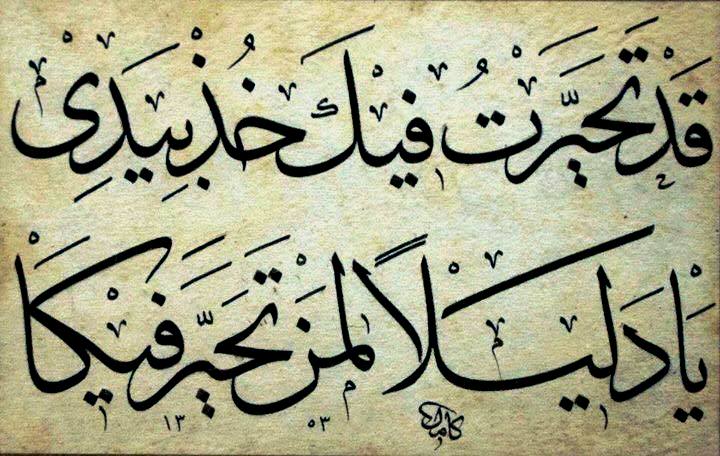 قَدْ تَحَيَّرْتُ فِيْكَ خُذْ بِيَدِيْ
يَا دَلِيْلًا لِمَنْ تَحَيَّرَ فِيْكَا
كامل ١٣٥٣